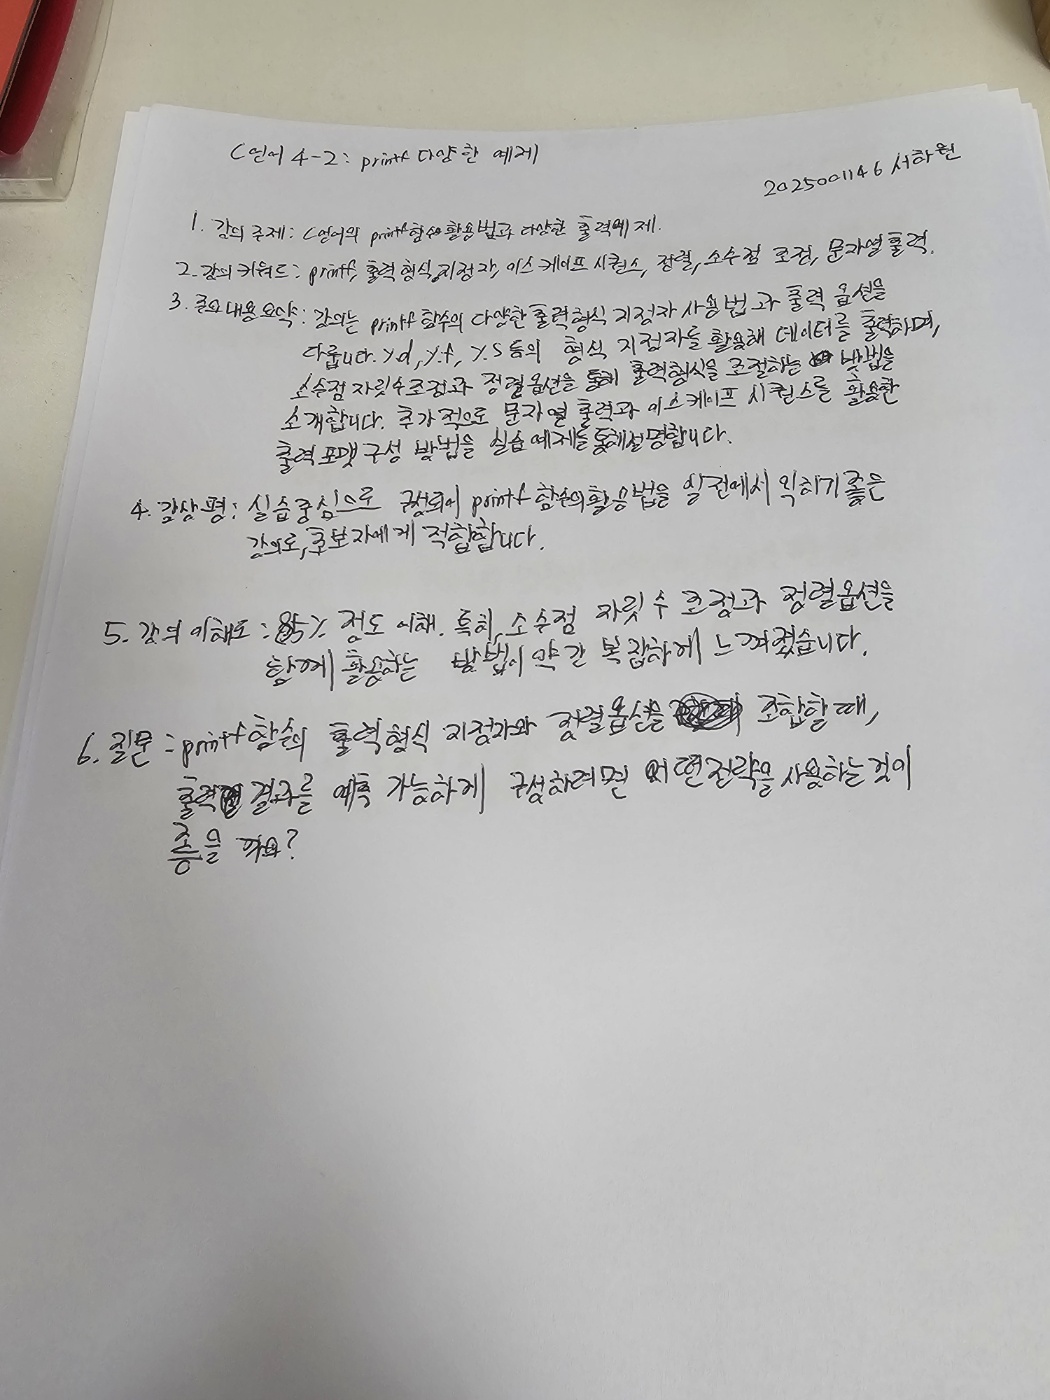 C언어 4-2: printf 다양한 예제
2025001146 서하원
1. 강의 주제: C언어의 printf함수 활용법과 다양한 출력예제.
2. 강의 키워드: printf, 출력 형식 지정자, 이스케이프 시퀀스, 정렬, 소수점 조정, 문자열 출력.
3. 주요 내용 요약: 강의는 printf 함수의 다양한 출력 형식 지정자 사용법과 출력 옵션을
다룹니다. %d, %f, %s 등의 형식 지정자를 활용해 데이터를 출력하며,
소수점 자릿수 조정과 정렬 옵션을 통해 출력형식을 조절하는 방법을
소개합니다. 추가적으로 문자열 출력과 이스케이프 시퀀스를 활용한
출력 포맷 구성 방법을 실습 예제를 통해 설명합니다.
4. 감상평: 실습 중심으로 구성되어 printf 함수의 활용법을 실전에서 익히기 좋은
강의로, 초보자에게 적합합니다.
5. 강의 이해도: 85% 정도 이해. 특히, 소수점 자릿수 조정과 정렬옵션을
함께 활용하는 방법이 약간 복잡하게 느껴졌습니다.
6. 질문: printf 함수의 출력 형식 지정자와 정렬옵션을 조합할 때,
출력 결과를 예측 가능하게 구성하려면 어떤 전략을 사용하는 것이
좋을까요?